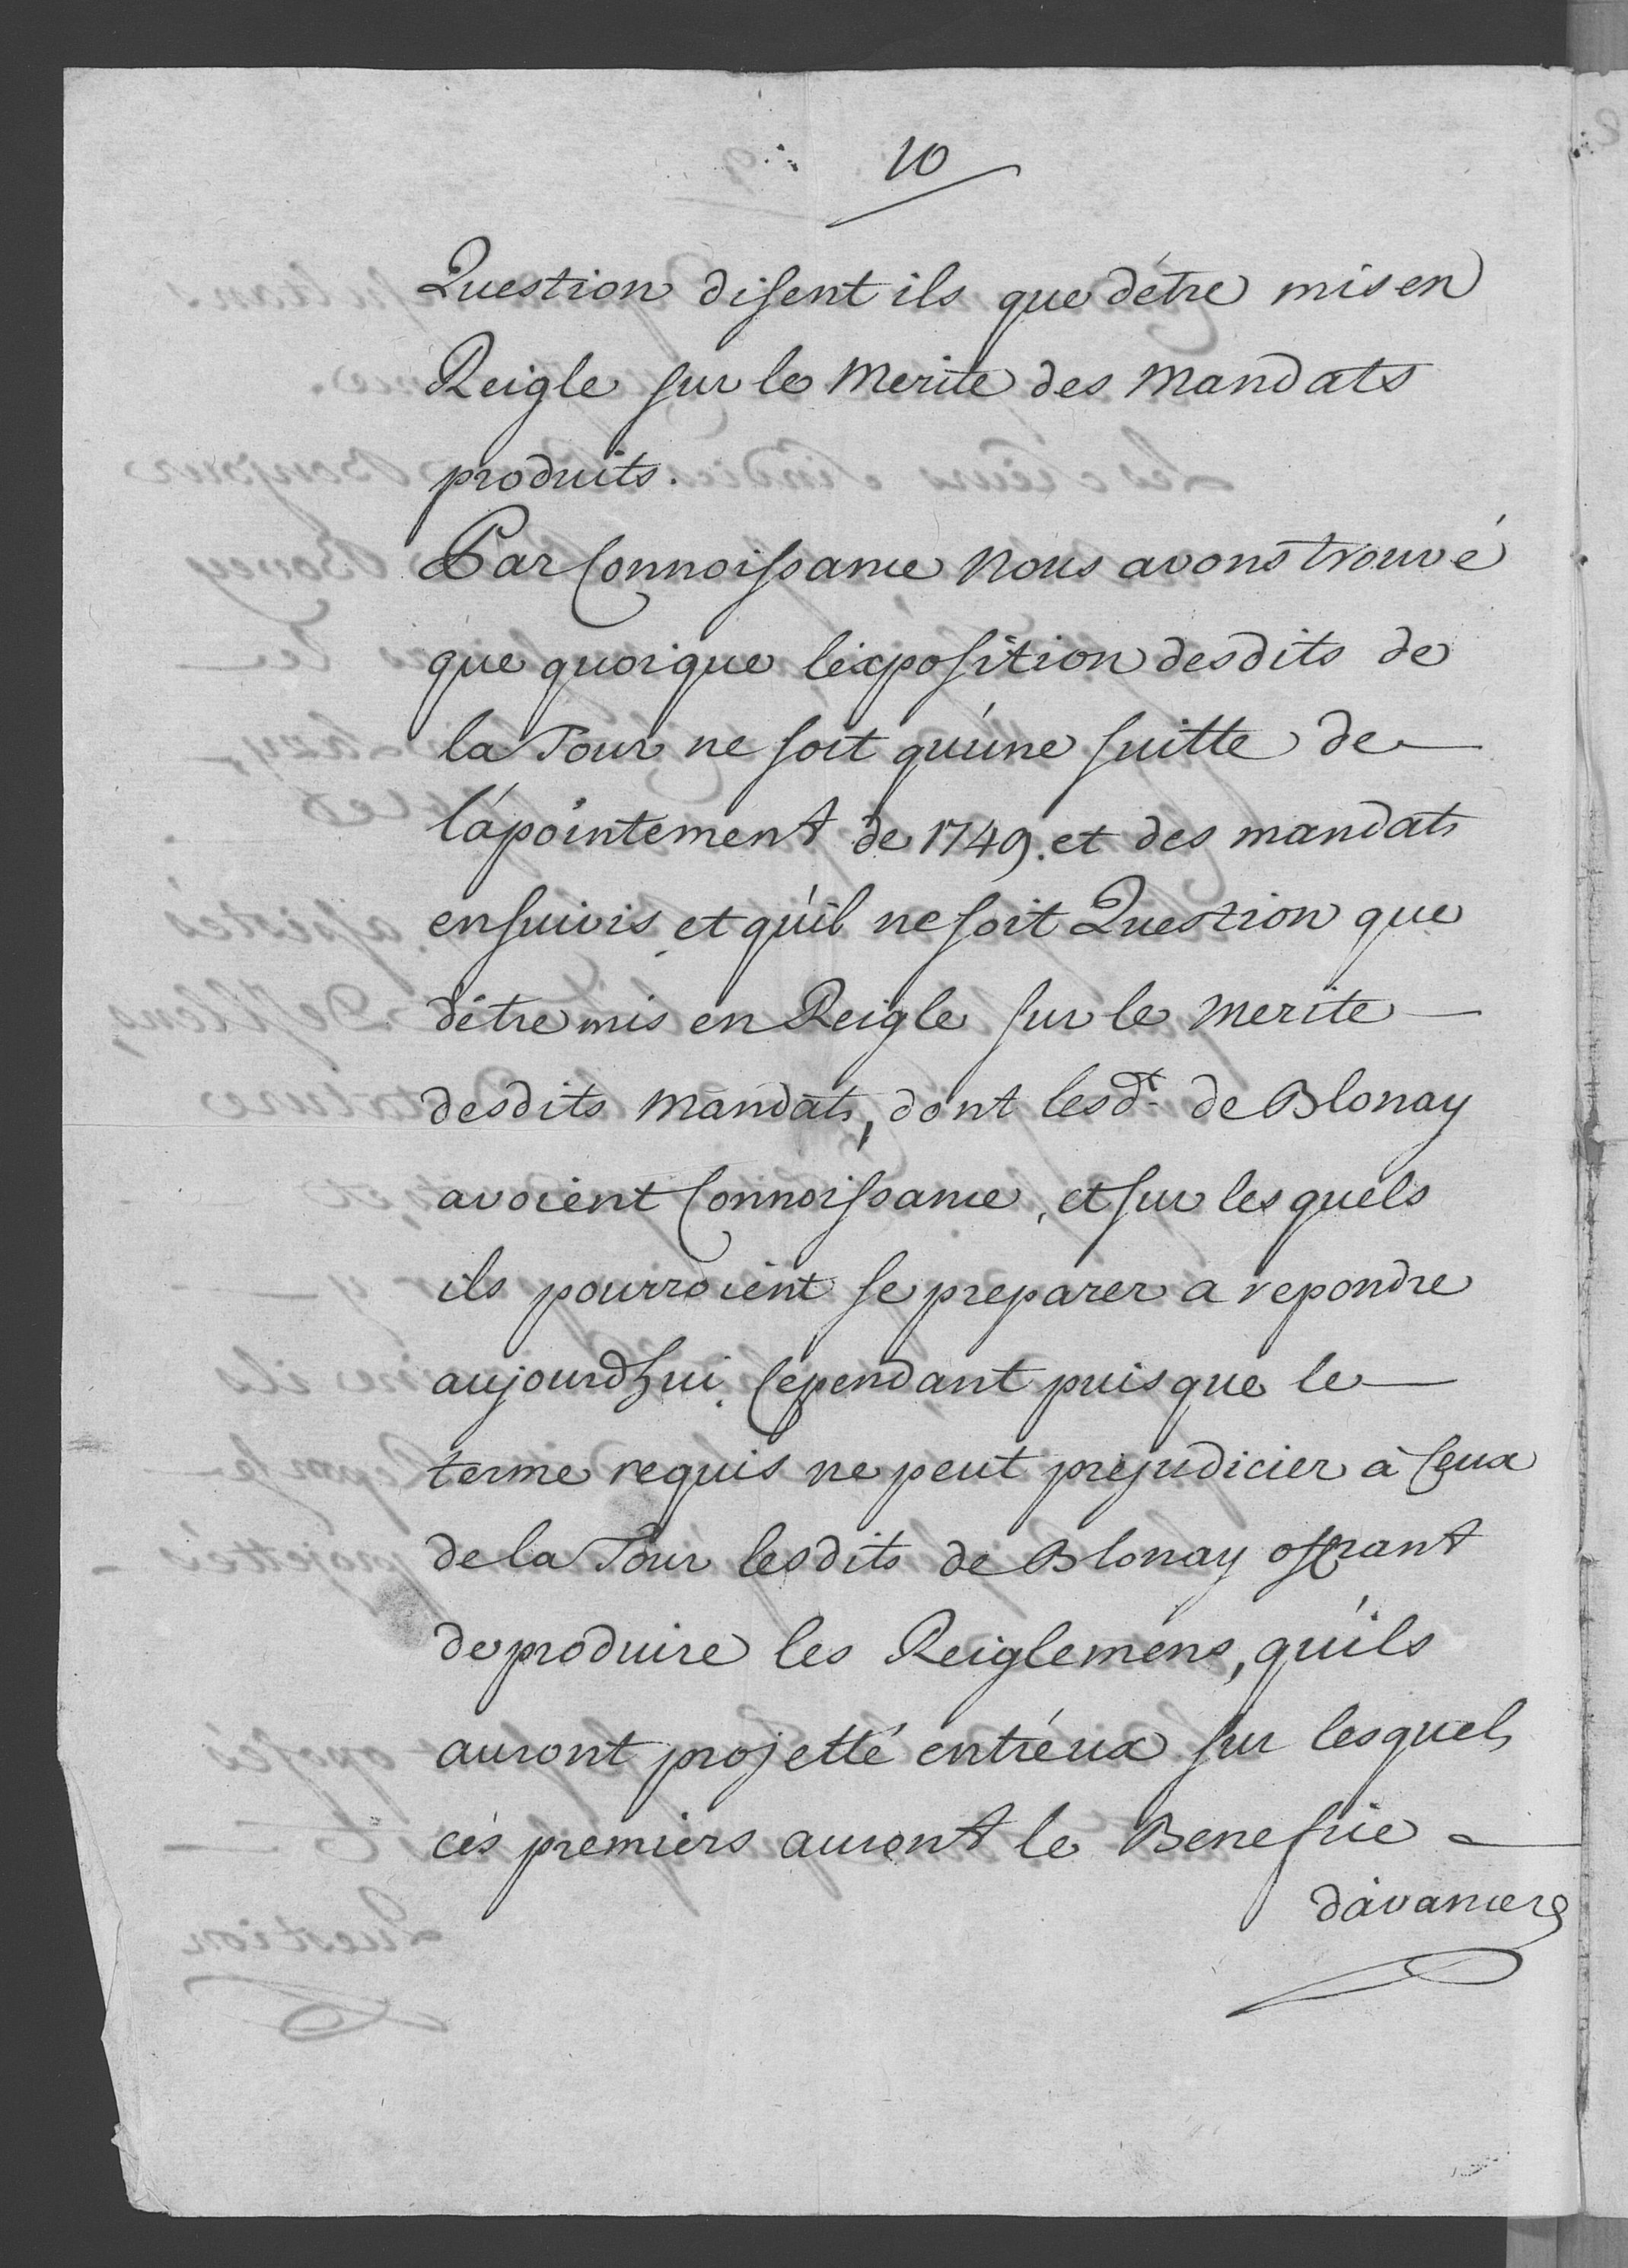 10
Question disent ils que d'étre mis en
Reigle sur le merite des mandats
produits.
Par Connoissance nous avons trouvé
que quoique l'éxposition desdits de
la Tour ne soit qu'úne suitte de
l'ápointement de 1749. et des mandats
ensuivis, et qu'il ne soit Question que
d'étre mis en Reigle sur le merite
desdits mandats, dont lesdts de Blonay
avoient Connoissance, et sur lesquels
ils pourroient se preparer a repondre
aujourdhui, Cependant puisque le
terme requis ne peut prejudicier à Ceux
de la Tour lesdits de Blonay offrant
de produire les Reiglemens, qu'ils
auront projetté entr'éux sur lesquels
ces premiers auront le Benefice
d'avancer